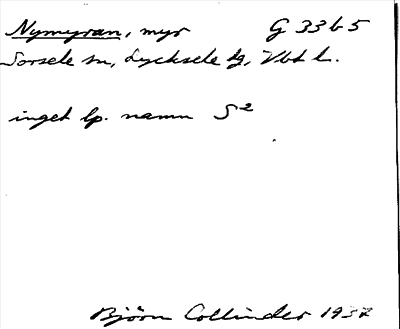 Nymyran, myr G 33 b 5
Sorsele sn, Lycksele tg, Vbt l.
inget lp. namn S²
Björn Collinder 1937